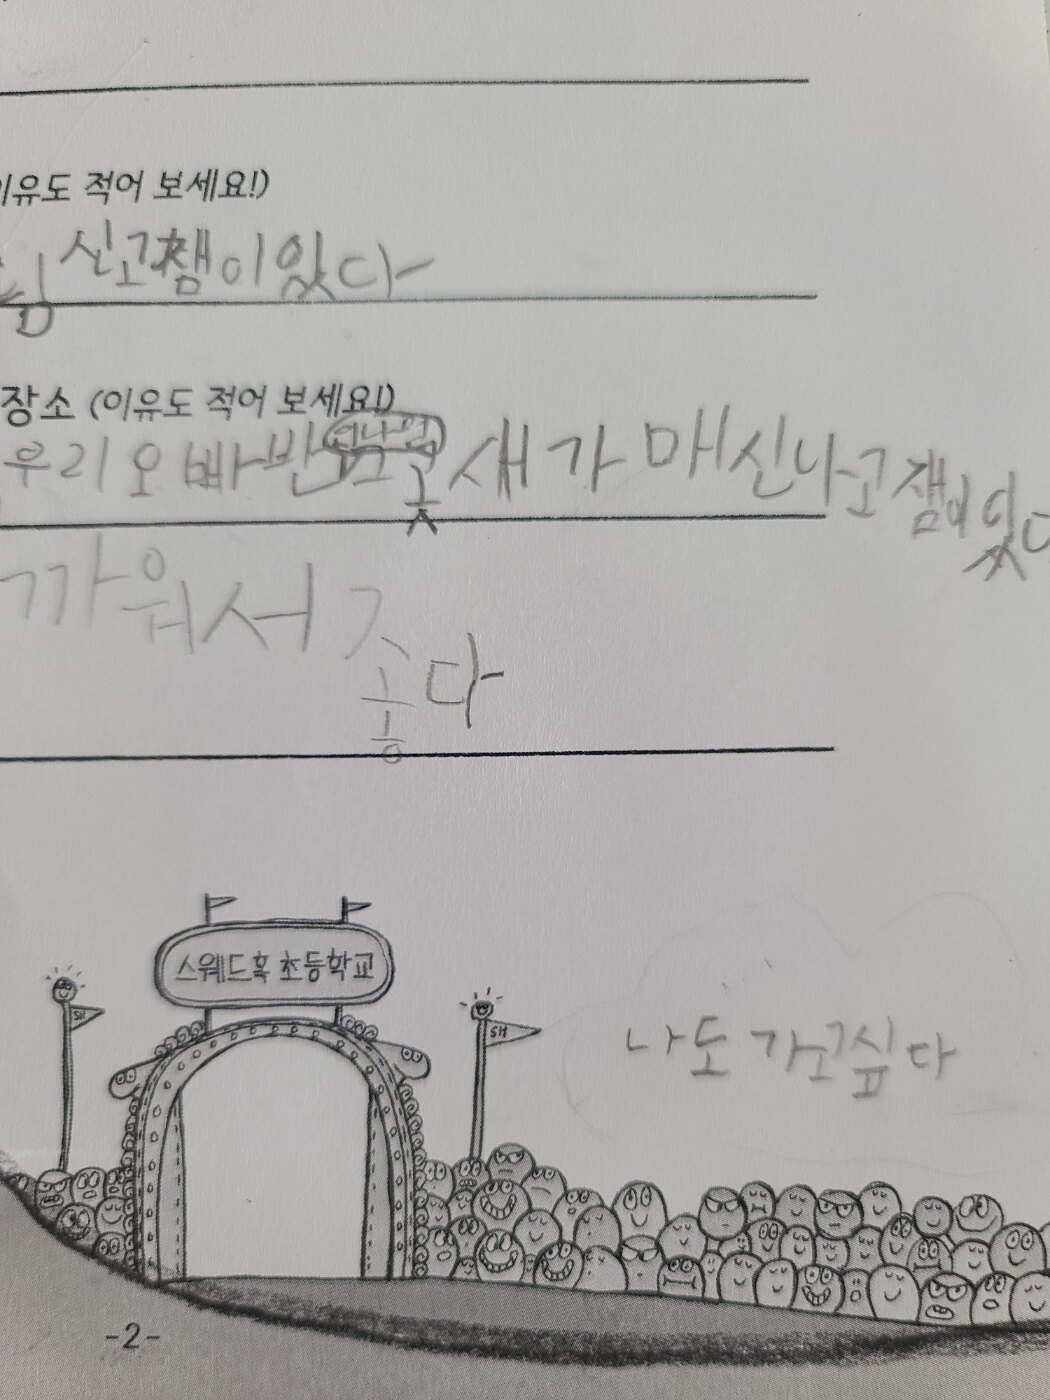 이유도 적어 보세요!)
신고잼이있다
장소 (이유도 적어 보세요!)
우리오빠반 곳새가매신나고잼이있다
까워서 좋다
스웨드혹 초등학교
SH
SH
나도 가고싶다
-2-